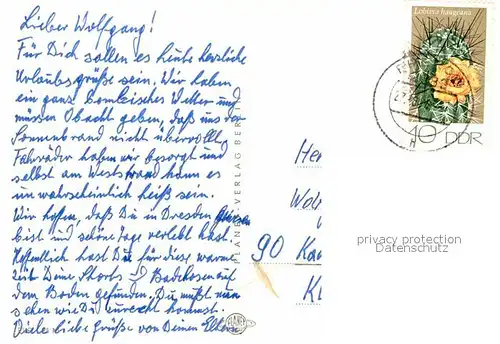 Lieber Wolfgang!
Für Dich sollen es heute herzliche
Urlaubsgrüße sein. Wir haben
ein ganz bombiges Wetter und
müssen Obacht geben, daß uns der
Sonnenbrand nicht übervollt
Fahräder haben wir besorgt und
selbst am Weststrand kann es
unwahrscheinlich heiß sein.
Wir hoffen, daß Du in Dresden gewesen
bist und schöne Tage verlebt hast
Hoffentlich hast Du für diese warme
Zeit Deine Shorts u Badehosen auf
dem Boden gefunden. Du mußt nun
sehen wie Du zurecht kommst.
Viele liebe Grüße von Deinen Eltern
VERLAG BERLIN
Lobivia haageana
10 DDR
He
Wol
90 Ka
K
privacy protection
Datenschutz